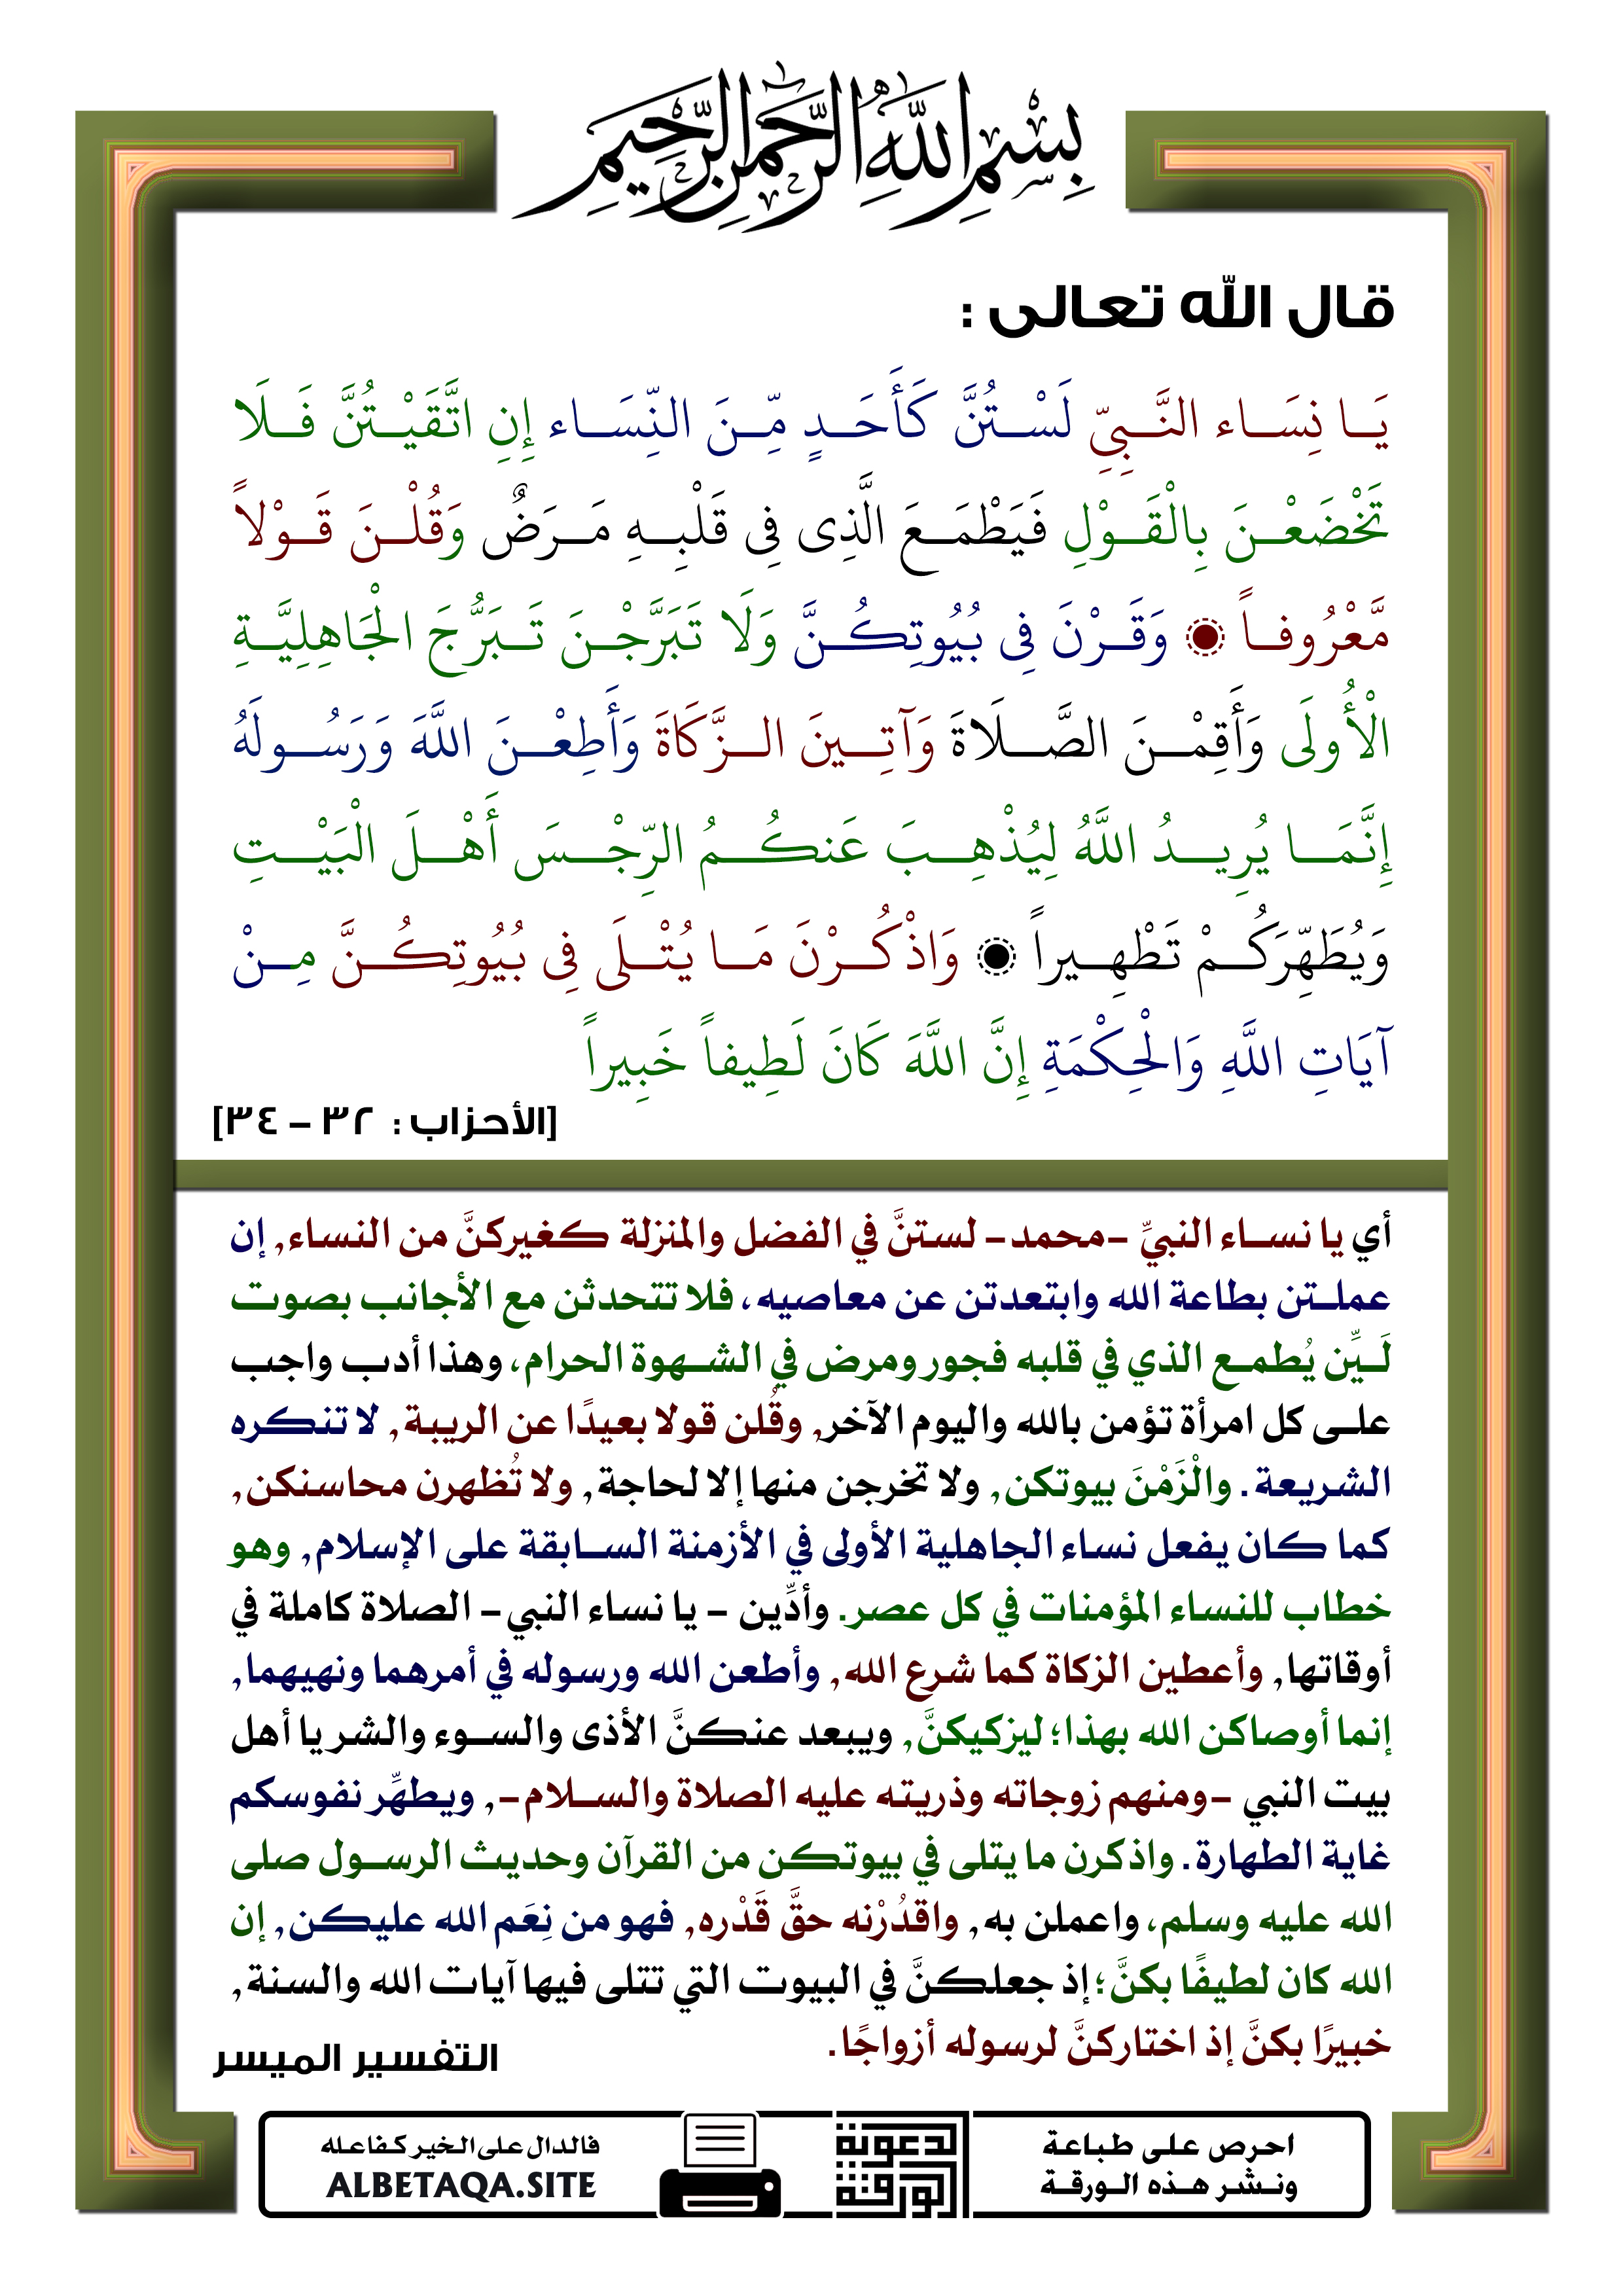 بِسْمِ اللَّهِ الرَّحْمَٰنِ الرَّحِيمِ
قال الله تعالى :
يَا نِسَاء النَّبِيِّ لَسْتُنَّ كَأَحَدٍ مِّنَ النِّسَاء إِنِ اتَّقَيْتُنَّ فَلَا
تَخْضَعْنَ بِالْقَوْلِ فَيَطْمَعَ الَّذِى فِى قَلْبِهِ مَرَضٌ وَقُلْنَ قَوْلاً
مَّعْرُوفاً ۝ وَقَرْنَ فِى بُيُوتِكُنَّ وَلَا تَبَرَّجْنَ تَبَرُّجَ الْجَاهِلِيَّةِ
الْأُولَى وَأَقِمْنَ الصَّلَاةَ وَآتِينَ الزَّكَاةَ وَأَطِعْنَ اللَّهَ وَرَسُولَهُ
إِنَّمَا يُرِيدُ اللَّهُ لِيُذْهِبَ عَنكُمُ الرِّجْسَ أَهْلَ الْبَيْتِ
وَيُطَهِّرَكُمْ تَطْهِيراً ۝ وَاذْكُرْنَ مَا يُتْلَى فِى بُيُوتِكُنَّ مِنْ
آيَاتِ اللَّهِ وَالْحِكْمَةِ إِنَّ اللَّهَ كَانَ لَطِيفاً خَبِيراً
[الأحزاب : ٣٢ – ٣٤]
أي يا نساء النبيِّ -محمد- لستنَّ في الفضل والمنزلة كغيركنَّ من النساء, إن
عملتن بطاعة الله وابتعدتن عن معاصيه، فلا تتحدثن مع الأجانب بصوت
لَيِّن يُطمع الذي في قلبه فجور ومرض في الشهوة الحرام، وهذا أدب واجب
على كل امرأة تؤمن بالله واليوم الآخر, وقُلن قولا بعيدًا عن الريبة, لا تنكره
الشريعة. والْزَمْنَ بيوتكن, ولا تخرجن منها إلا لحاجة, ولا تُظهرن محاسنكن,
كما كان يفعل نساء الجاهلية الأولى في الأزمنة السابقة على الإسلام, وهو
خطاب للنساء المؤمنات في كل عصر. وأدِّين - يا نساء النبي- الصلاة كاملة في
أوقاتها, وأعطين الزكاة كما شرع الله, وأطعن الله ورسوله في أمرهما ونهيهما,
إنما أوصاكن الله بهذا؛ ليزكيكنَّ, ويبعد عنكنَّ الأذى والسوء والشر يا أهل
بيت النبي -ومنهم زوجاته وذريته عليه الصلاة والسلام-, ويطهِّر نفوسكم
غاية الطهارة. واذكرن ما يتلى في بيوتكن من القرآن وحديث الرسول صلى
الله عليه وسلم، واعملن به, واقدُرْنه حقَّ قَدْره, فهو من نِعَم الله عليكن, إن
الله كان لطيفًا بكنَّ؛ إذ جعلكنَّ في البيوت التي تتلى فيها آيات الله والسنة,
خبيرًا بكنَّ إذ اختاركنَّ لرسوله أزواجًا.
التفسير الميسر
احرص على طباعة
ونشر هذه الورقة
الورقة
الدعوية
فالدال على الخير كفاعله
ALBETAQA.SITE